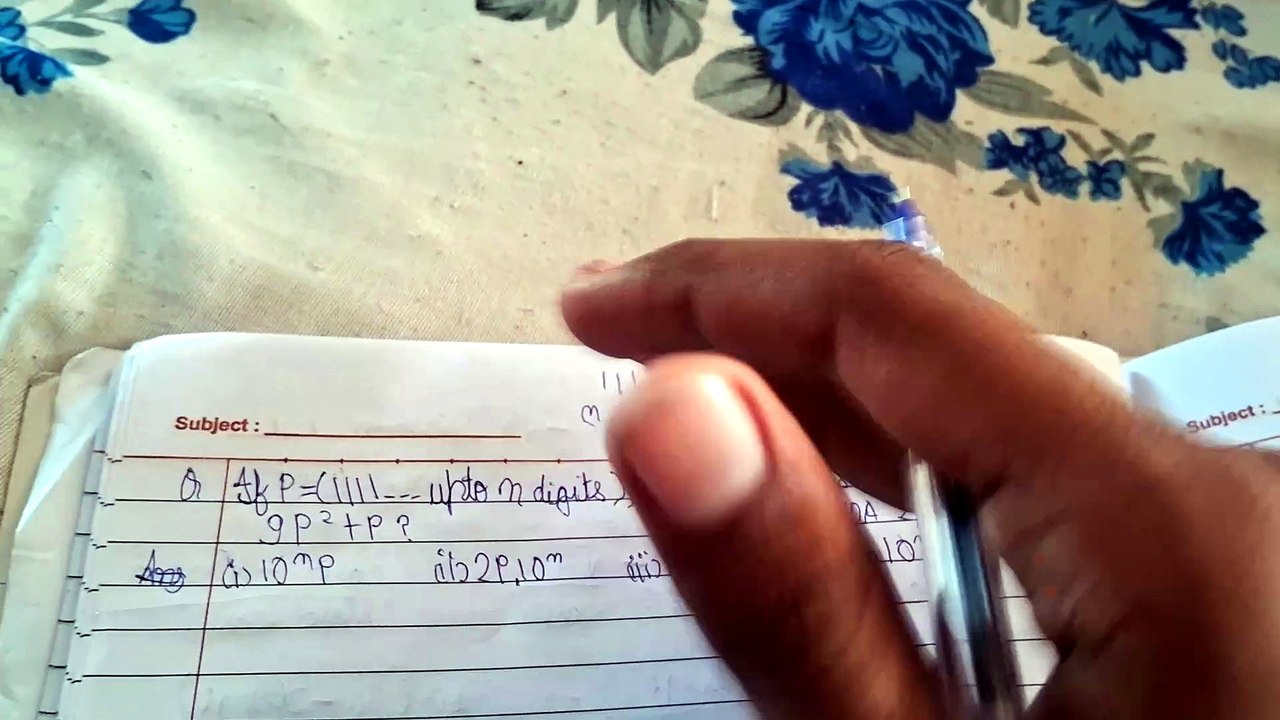 111
Subject :
Subject :
m
Q If P=(1111--- upto n digits)
9P²+P ?
Ans (i) 10ⁿP (ii) 2P.10ⁿ (iii) 10ⁿ